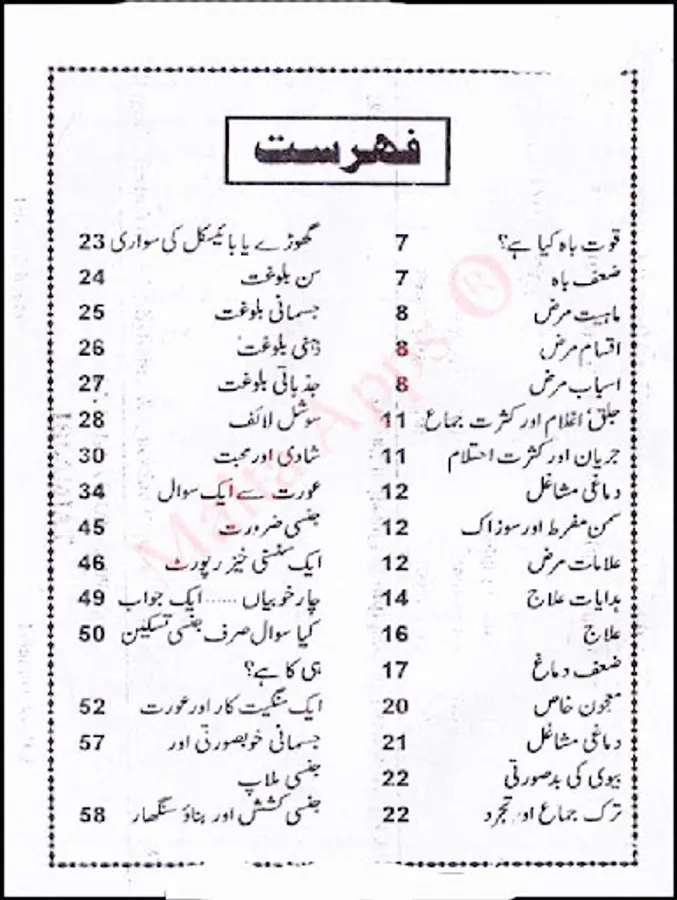 فہرست
قوت باہ کیا ہے؟ 7
ضعف باہ 7
ماہیت مرض 8
اقسام مرض 8
اسباب مرض 8
جلق، اغلام اور کثرت جماع 11
جریان اور کثرت احتلام 11
دماغی مشاغل 12
سمن مفرط اور سوزاک 12
علامات مرض 12
ہدایات علاج 14
علاج 16
ضعف دماغ 17
معجون خاص 20
دماغی مشاغل 21
بیوی کی بدصورتی 22
ترک جماع اور تجرد 22
گھوڑے یا بائیسکل کی سواری 23
سن بلوغت 24
جسمانی بلوغت 25
ذہنی بلوغت 26
جذباتی بلوغت 27
سوشل لائف 28
شادی اور محبت 30
عورت سے ایک سوال 34
جنسی ضرورت 45
ایک سنسنی خیز رپورٹ 46
چار خوبیاں ...... ایک جواب 49
کیا سوال صرف جنسی تسکین 50
ہی کا ہے؟
ایک سنگیت کار اور عورت 52
جسمانی خوبصورتی اور 57
جنسی ملاپ
جنسی کشش اور بناؤ سنگھار 58
Malta Apps ®